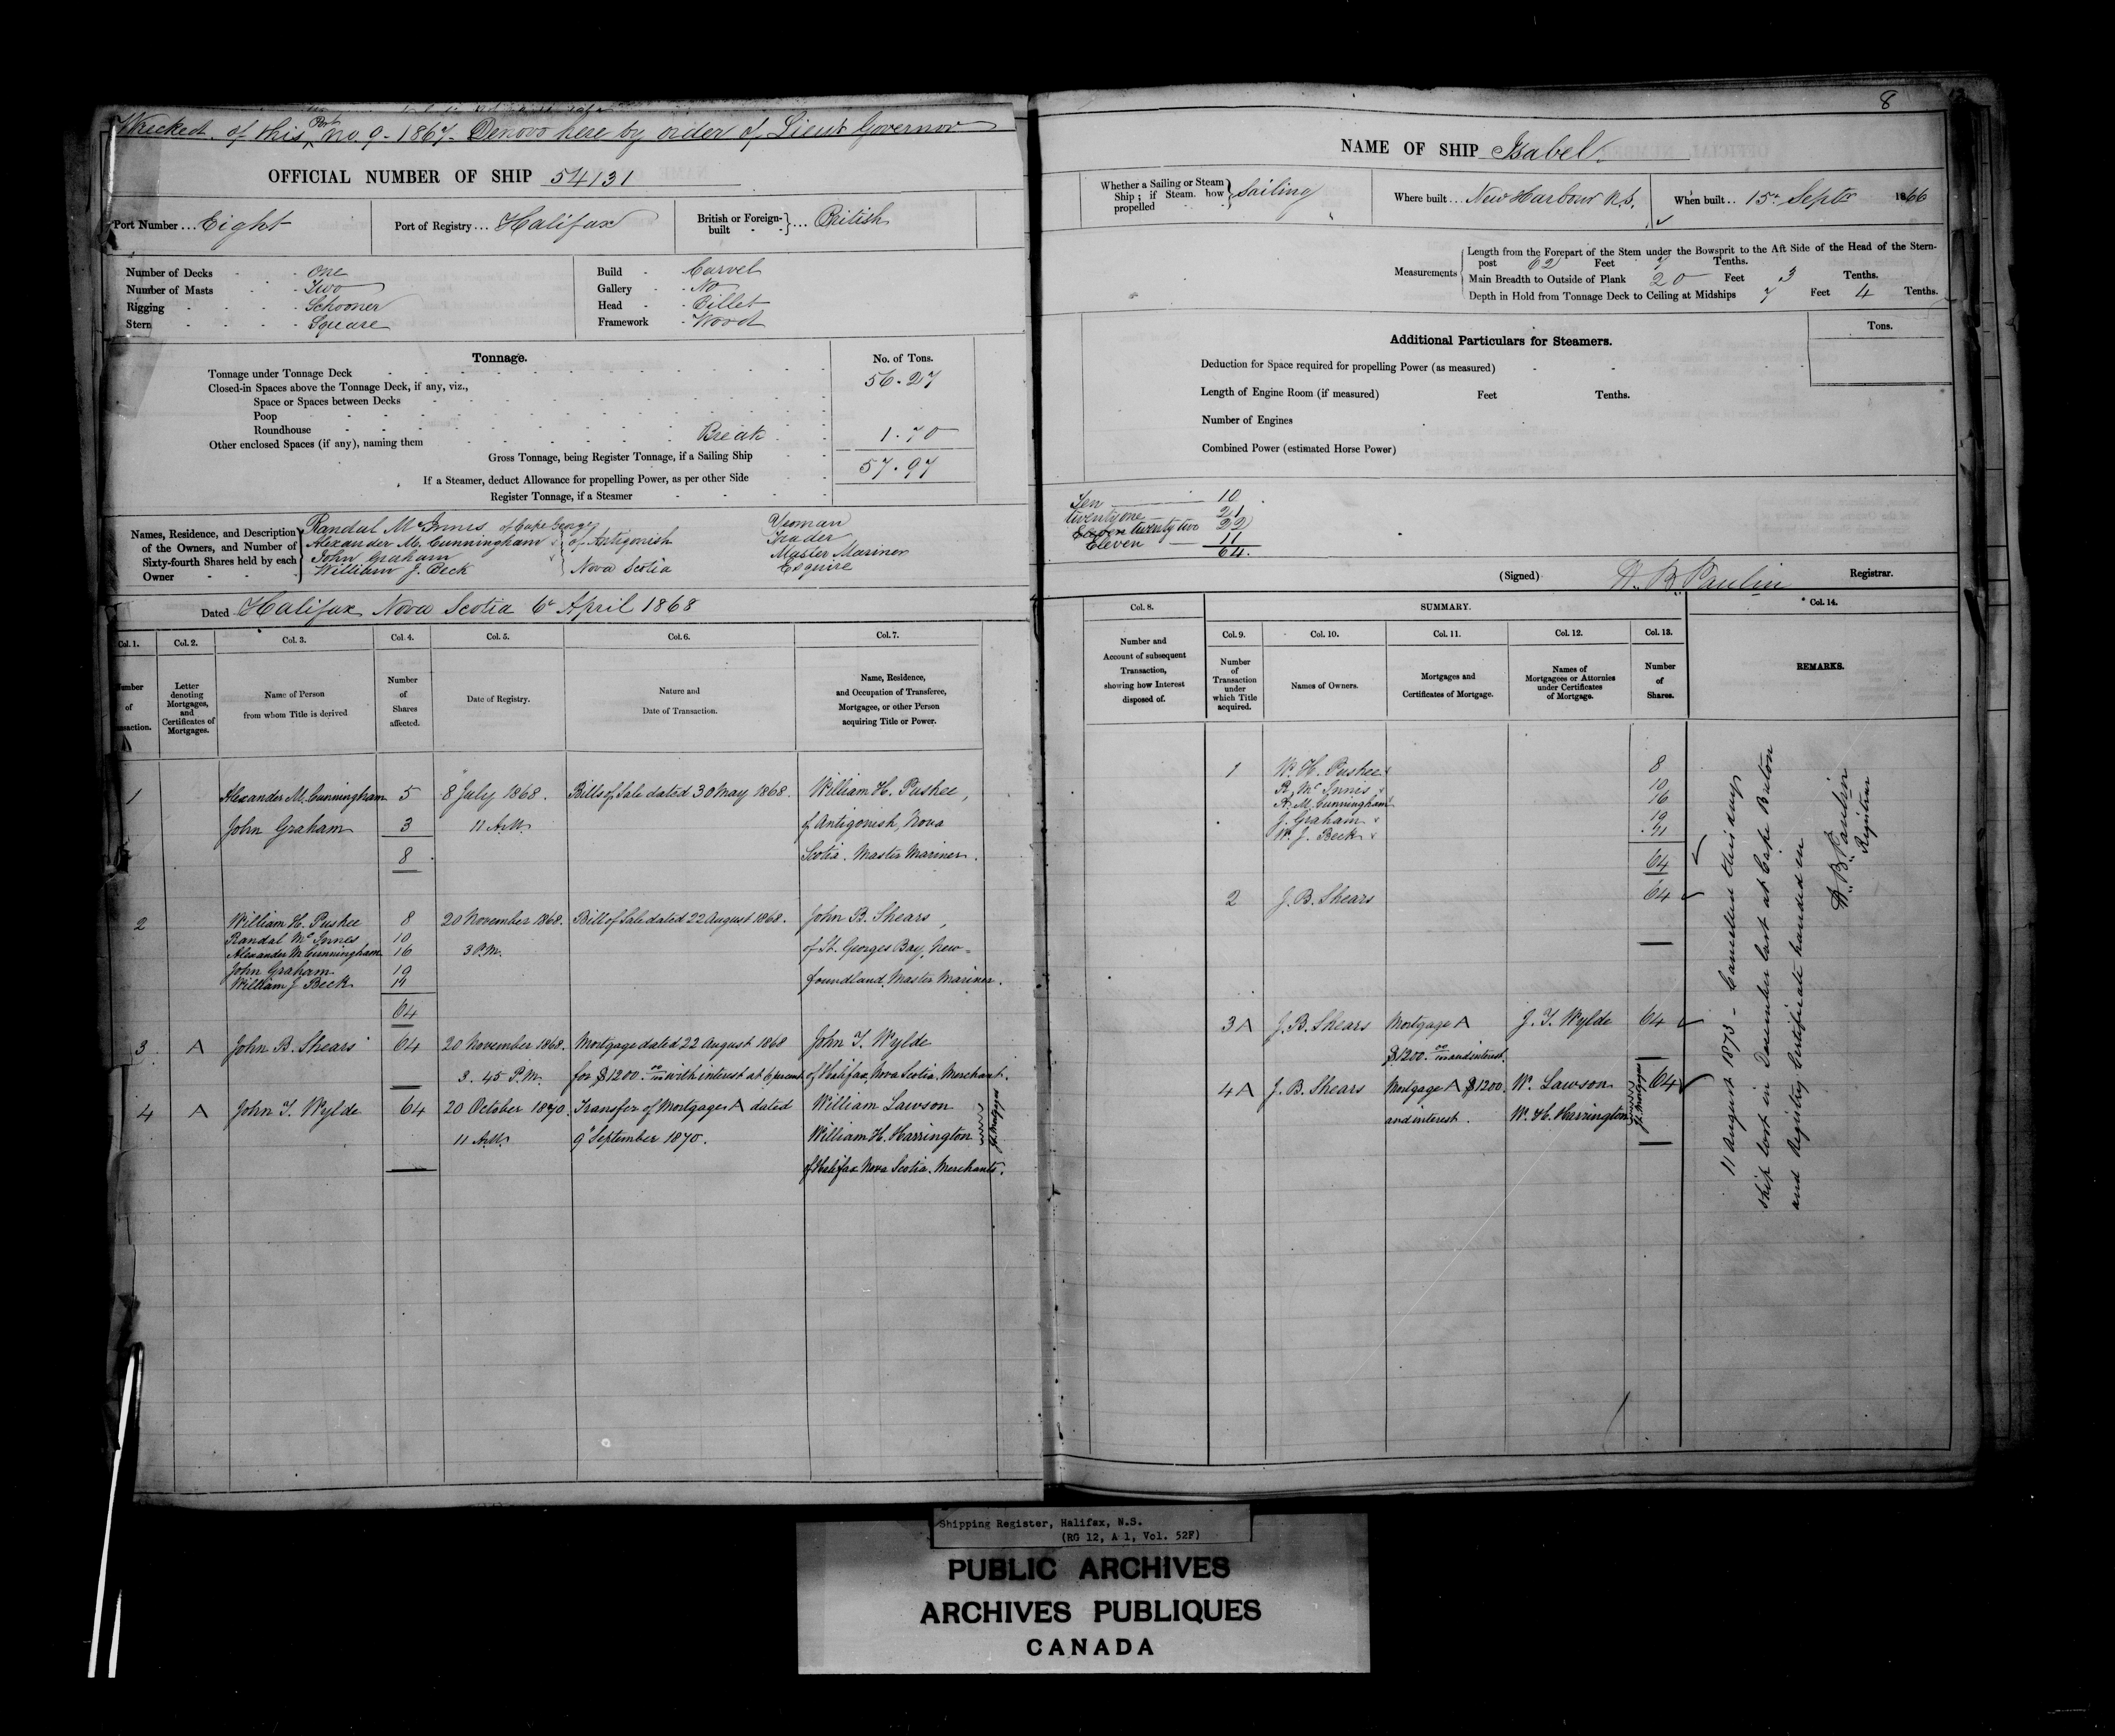 Wrecked of this Port No. 9 - 1867 - Denovo here by order of Lieut Governor
OFFICIAL NUMBER OF SHIP 54131
Port Number ... Eight
Port of Registry ... Halifax
British or Foreign-built ... British
Number of Decks - One
Number of Masts - Two
Rigging - Schooner
Stern - Square
Build - Carvel
Gallery - No
Head - Billet
Framework - Wood
Tonnage.
No. of Tons.
Tonnage under Tonnage Deck 56.27
Closed-in Spaces above the Tonnage Deck, if any, viz.,
Space or Spaces between Decks
Poop
Roundhouse
Other enclosed Spaces (if any), naming them Break 1.70
Gross Tonnage, being Register Tonnage, if a Sailing Ship 57.97
If a Steamer, deduct Allowance for propelling Power, as per other Side
Register Tonnage, if a Steamer
Names, Residence, and Description of the Owners, and Number of Sixty-fourth Shares held by each Owner
Randal McInnis of Cape George Yeoman
Alexander M. Cunningham } of Antigonish Trader
John Graham Master Mariner
William J. Beck } Nova Scotia Esquire
Dated Halifax Nova Scotia 6th April 1868
Col. 1. Col. 2. Col. 3. Col. 4. Col. 5. Col. 6. Col. 7.
Number of Transaction.
Letter denoting Mortgages, and Certificates of Mortgages.
Name of Person from whom Title is derived
Number of Shares affected.
Date of Registry.
Nature and Date of Transaction.
Name, Residence, and Occupation of Transferee, Mortgagee, or other Person acquiring Title or Power.
1 Alexander M. Cunningham 5 8 July 1868. Bills of Sale dated 30 May 1868. William H. Pushee,
John Graham 3 11 A.M. of Antigonish, Nova
8 Scotia. Master Mariner.
2 William H. Pushee 8 20 November 1868. Bill of Sale dated 22 August 1868. John B. Shears,
Randal McInnes 10
Alexander M. Cunningham 16 3 P.M. of St. Georges Bay, New-
John Graham 19
William J Beck 11 foundland, Master Mariner.
64
3 A John B. Shears 64 20 November 1868. Mortgage dated 22 August 1868 John T. Wylde
3.45 P.M. for $1200.00 with interest at 6 percent of Halifax, Nova Scotia, Merchant.
4 A John T. Wylde 64 20 October 1870. Transfer of Mortgage A dated William Lawson
11 A.M. 9th September 1870. William H. Harrington
Jt. Mortgagees
of Halifax Nova Scotia. Merchants.
8
NAME OF SHIP Isabel
Whether a Sailing or Steam Ship; if Steam. how propelled } Sailing
Where built ... New Harbour N.S.
When built .. 15th Septr 1866
Measurements
Length from the Forepart of the Stem under the Bowsprit to the Aft Side of the Head of the Stern-
post 62 Feet 7 Tenths.
Main Breadth to Outside of Plank 20 Feet 3 Tenths.
Depth in Hold from Tonnage Deck to Ceiling at Midships 7 Feet 4 Tenths.
Additional Particulars for Steamers.
Tons.
Deduction for Space required for propelling Power (as measured)
Length of Engine Room (if measured) Feet Tenths.
Number of Engines
Combined Power (estimated Horse Power)
Ten 10
twenty one 21
twenty two 22
Eleven 11
64.
(Signed) Registrar.
Col. 8. SUMMARY. Col. 14.
Col. 9. Col. 10. Col. 11. Col. 12. Col. 13.
Number and Account of subsequent Transaction, showing how Interest disposed of.
Number of Transaction under which Title acquired.
Names of Owners.
Mortgages and Certificates of Mortgage.
Names of Mortgagees or Attornies under Certificates of Mortgage.
Number of Shares.
REMARKS.
1 W. H. Pushee 8
R. McInnis 10
A. M. Cunningham 16
J. Graham 19
W. J. Beck 11
64
2 J. B. Shears 64
3 A J. B. Shears Mortgage A J. T. Wylde 64
$1200.00 and interest.
4 A J. B. Shears Mortgage A $1200 W. Lawson 64
and interest. W. H. Harrington
Jt. Mortgagees
11 August 1873 - Cancelled this day
ship lost in December last at Cape Breton
and Registry Certificate handed in
Registrar
Shipping Register, Halifax, N.S.
(RG 12, A 1, Vol. 52F)
PUBLIC ARCHIVES
ARCHIVES PUBLIQUES
CANADA